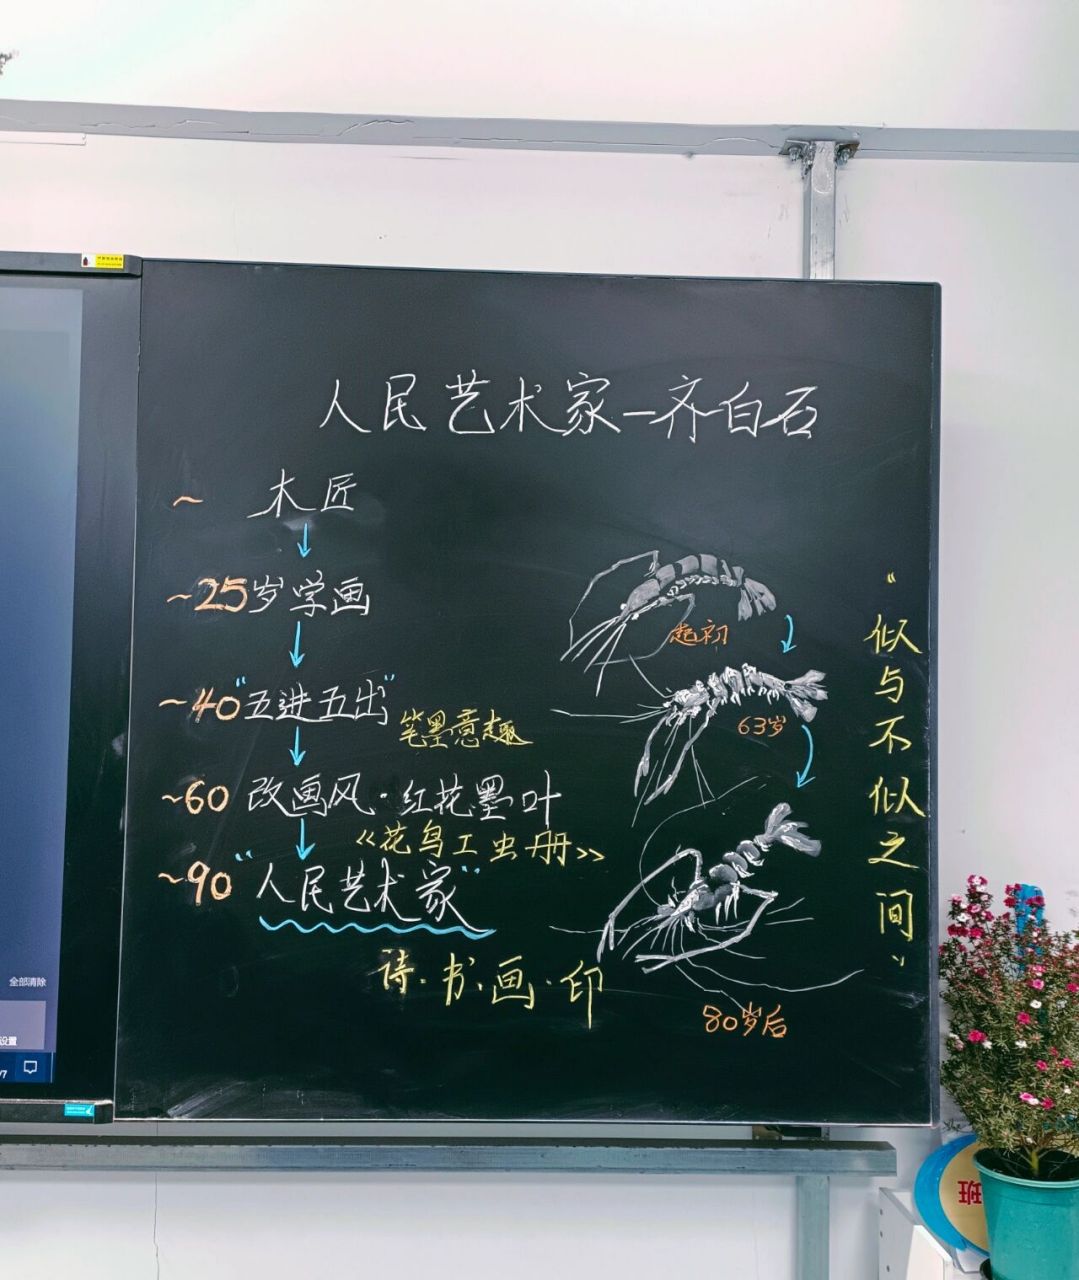 人民艺术家—齐白石
~ 木匠
~25岁学画
~40"五进五出"
笔墨意趣
~60 改画风·红花墨叶
《花鸟工虫册》
~90"人民艺术家"
诗·书·画·印
起初
63岁
80岁后
"似与不似之间"
全部清除
设置
班